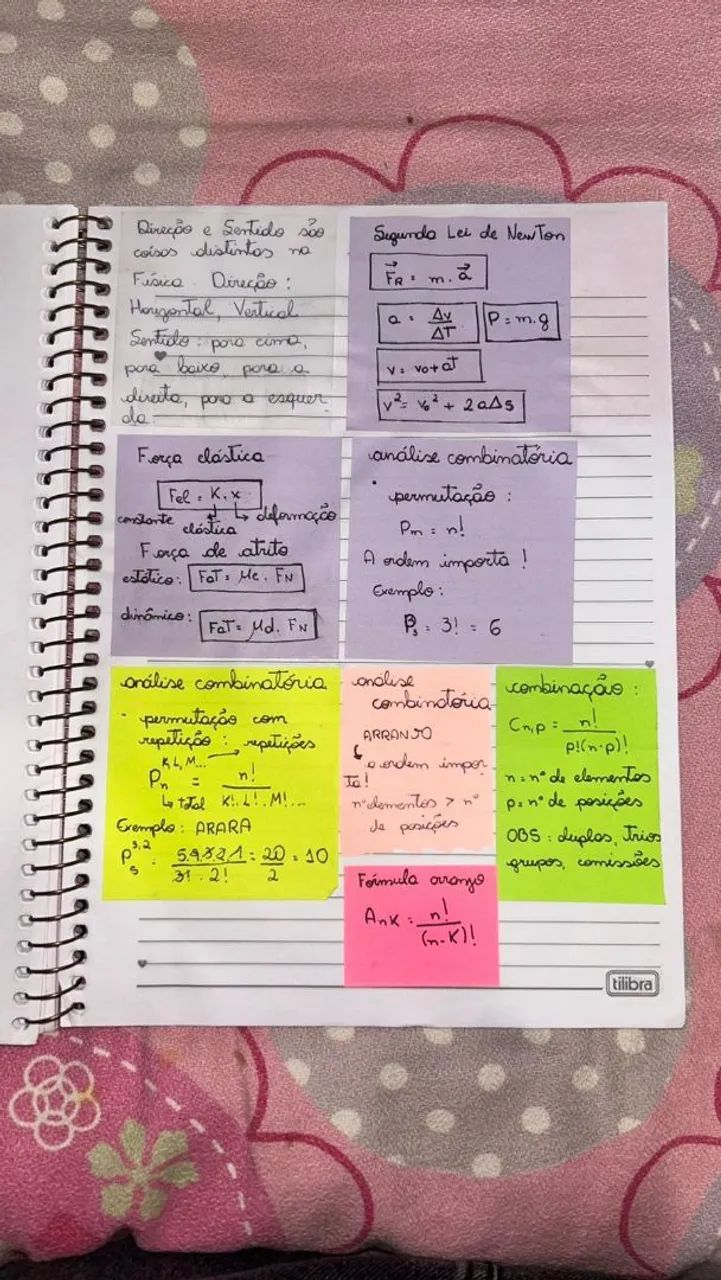 Direção e Sentido são
coisas distintas na
Física. Direção:
Horizontal, Vertical
Sentido: para cima,
para baixo, para a
direita, para a esquer
da.
Segunda Lei de Newton
F⃗R = m. a⃗
a = Δv/ΔT
P = m.g
v = v₀ + aT
v² = v₀² + 2aΔs
Força elástica
Fel = K.x
constante elástica
deformação
Força de atrito
estático: FaT = μe. FN
dinâmico: FaT = μd. FN
análise combinatória
• permutação:
Pn = n!
A ordem importa!
Exemplo:
P₃ = 3! = 6
análise combinatória
• permutação com
repetição: repetições
Pn^K,L,M... = n!/K!.L!.M!...
↳ total
Exemplo: ARARA
P₅^3,2 = 5.4.3.2.1/3!.2! = 20/2 = 10
análise
combinatória
ARRANJO
↳ a ordem impor
ta!
nº elementos > nº
de posições
Fórmula arranjo
An,K = n!/(n-K)!
combinação:
Cn,p = n!/p!(n-p)!
n = nº de elementos
p = nº de posições
OBS: duplas, trios
grupos, comissões
tilibra